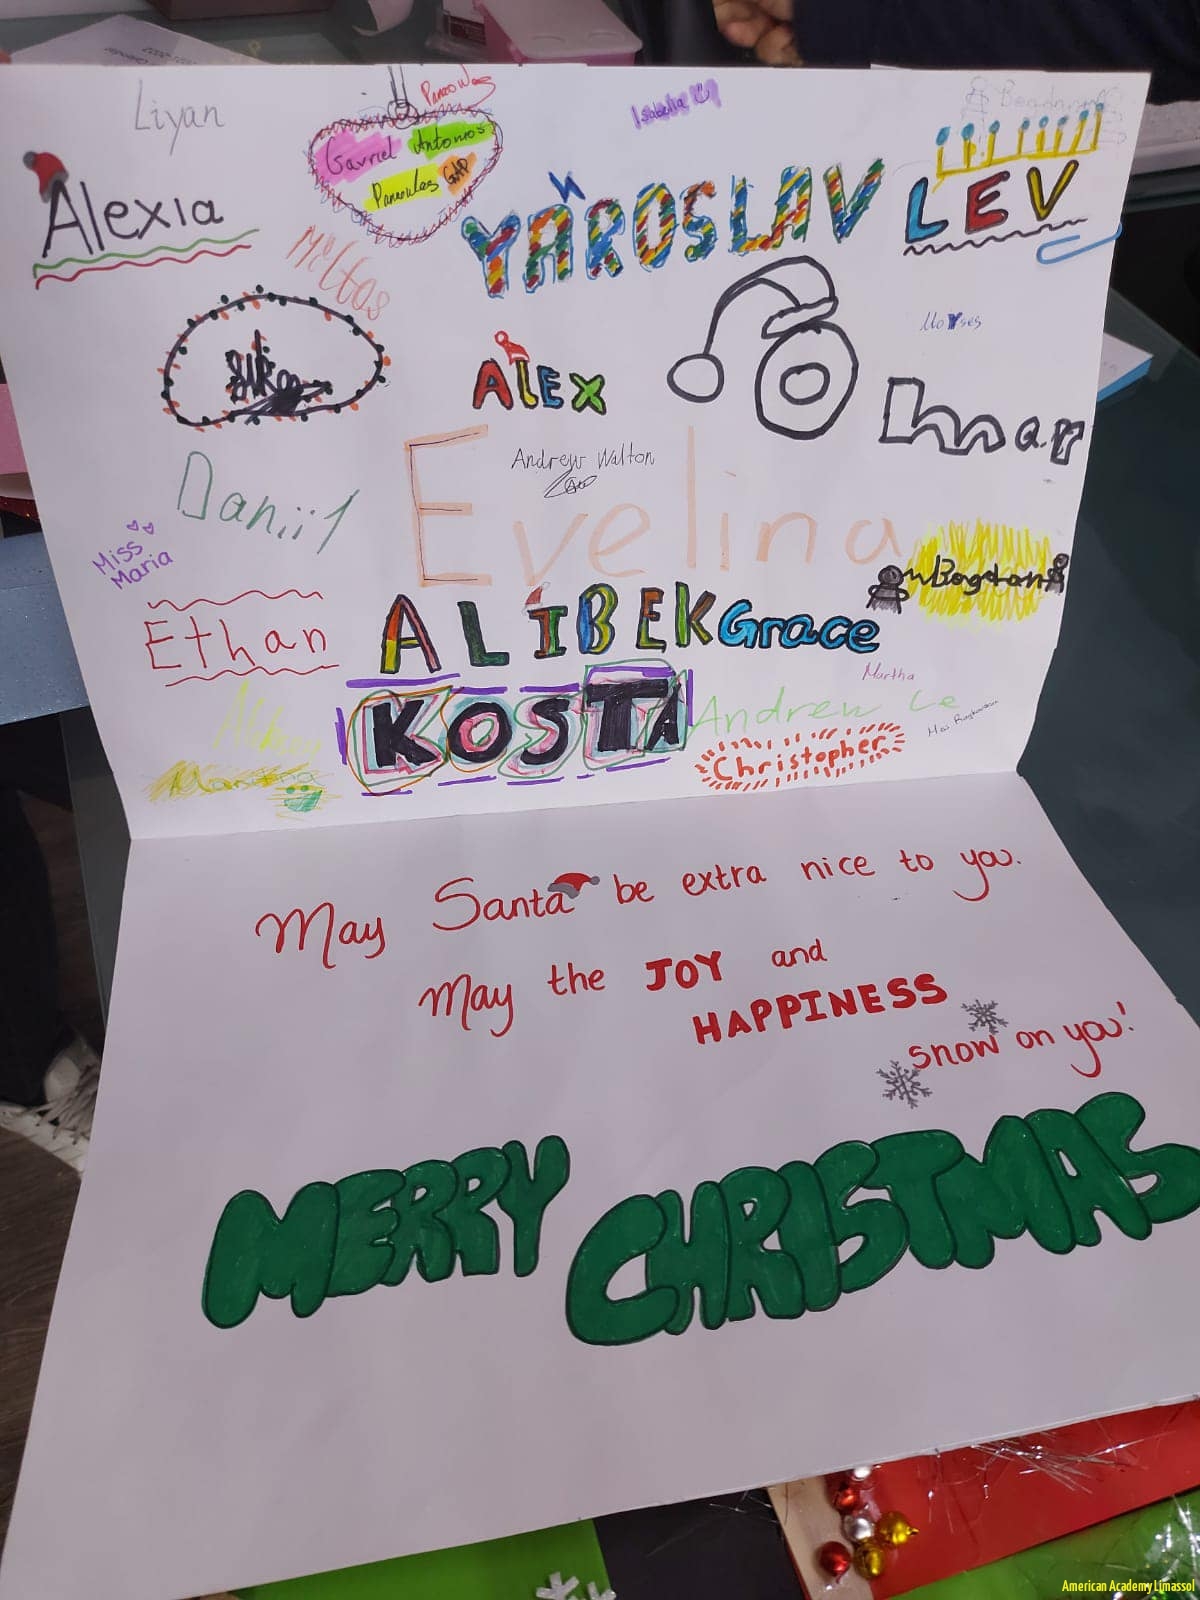 Liyan
Gavriel Antonios
Panaoulas GAP
Isabella
Alexia
YAROSLAV
LEV
Miltos
ALEX
Omar
Andrew Walton
Daniil
Evelina
Miss
Maria
Bogdan
Ethan
ALIBEK
Grace
Martha
KOSTA
Andrew Le
Christopher
May Santa be extra nice to you.
May the JOY and
HAPPINESS
snow on you!
MERRY CHRISTMAS
American Academy Limassol